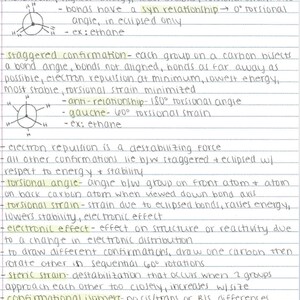 - bonds have a syn relationship → 0° torsional
angle, in eclipsed only
- ex: ethane
- staggered confirmation - each group on a carbon bisects
a bond angle, bonds not aligned, bonds as far away as
possible, electron repulsion at minimum, lowest energy,
most stable, torsional strain minimized
- anti-relationship - 180° torsional angle
- gauche - 60° torsional strain
- ex: ethane
- electron repulsion is a destabilizing force
- all other confirmations lie b/w staggered + eclipsed w/
respect to energy + stability
- torsional angle - angle b/w group on front atom + atom
on back carbon atom when viewed down bond axis
- torsional strain - strain due to eclipsed bonds, raises energy,
lowers stability, electronic effect
- electronic effect - effect on structure or reactivity due
to a change in electronic distribution
- to draw different confirmations, draw one carbon then
rotate other in sequential 60° rotations
- steric strain - destabilization that occurs when 2 groups
approach each other too closely, increases w/ size
- conformational isomers - positions or B/B differences